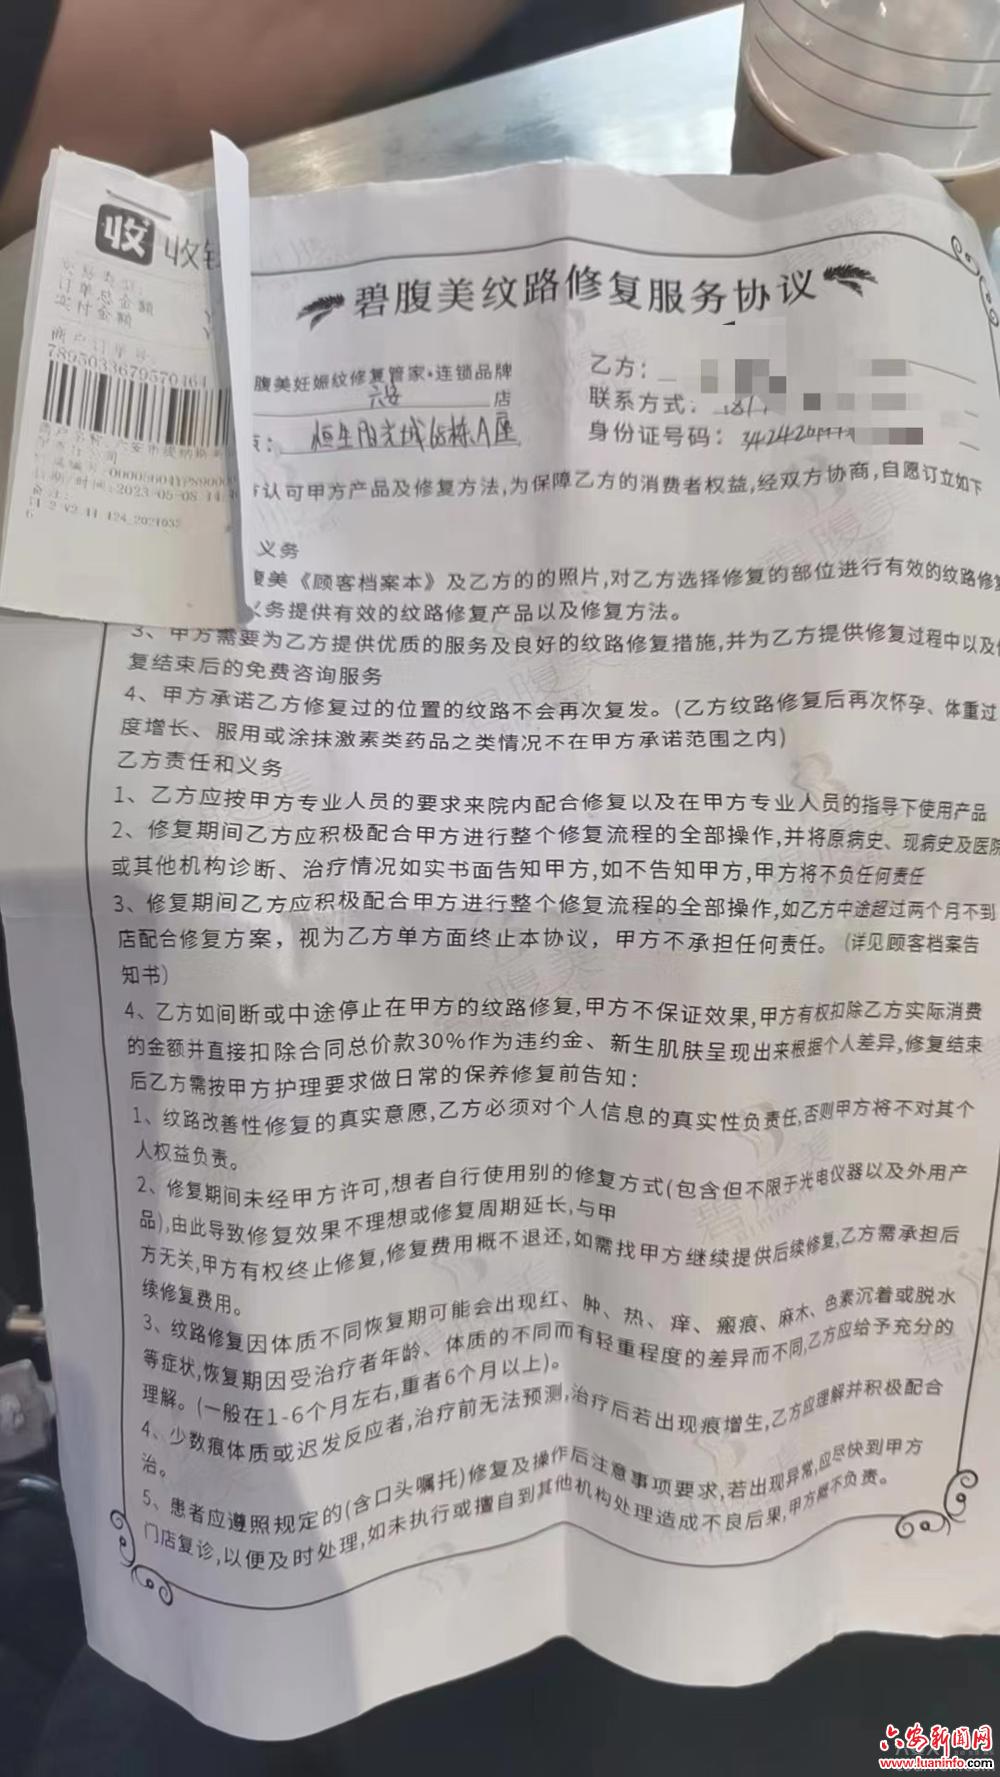 收 收钱
订单总金额
实付金额
商户订单号:
7895033679570464
日期/时间:2023-05-08 14:
备注:
碧腹美纹路修复服务协议
腹美妊娠纹修复管家·连锁品牌
六安 店
恒生阳光城68栋A座
乙方:
联系方式:
身份证号码: 342426
认可甲方产品及修复方法,为保障乙方的消费者权益,经双方协商,自愿订立如下
义务
腹美《顾客档案本》及乙方的的照片,对乙方选择修复的部位进行有效的纹路修复
义务提供有效的纹路修复产品以及修复方法。
3、甲方需要为乙方提供优质的服务及良好的纹路修复措施,并为乙方提供修复过程中以及修
复结束后的免费咨询服务
4、甲方承诺乙方修复过的位置的纹路不会再次复发。(乙方纹路修复后再次怀孕、体重过
度增长、服用或涂抹激素类药品之类情况不在甲方承诺范围之内)
乙方责任和义务
1、乙方应按甲方专业人员的要求来院内配合修复以及在甲方专业人员的指导下使用产品
2、修复期间乙方应积极配合甲方进行整个修复流程的全部操作,并将原病史、现病史及医院
或其他机构诊断、治疗情况如实书面告知甲方,如不告知甲方,甲方将不负任何责任
3、修复期间乙方应积极配合甲方进行整个修复流程的全部操作,如乙方中途超过两个月不到
店配合修复方案，视为乙方单方面终止本协议，甲方不承担任何责任。(详见顾客档案告
知书)
4、乙方如间断或中途停止在甲方的纹路修复,甲方不保证效果,甲方有权扣除乙方实际消费
的金额并直接扣除合同总价款30%作为违约金、新生肌肤呈现出来根据个人差异,修复结束
后乙方需按甲方护理要求做日常的保养修复前告知:
1、纹路改善性修复的真实意愿,乙方必须对个人信息的真实性负责任,否则甲方将不对其个
人权益负责。
2、修复期间未经甲方许可,想者自行使用别的修复方式(包含但不限于光电仪器以及外用产
品),由此导致修复效果不理想或修复周期延长,与甲
方无关,甲方有权终止修复,修复费用概不退还,如需找甲方继续提供后续修复,乙方需承担后
续修复费用。
3、纹路修复因体质不同恢复期可能会出现红、肿、热、痒、瘢痕、麻木、色素沉着或脱水
等症状,恢复期因受治疗者年龄、体质的不同而有轻重程度的差异而不同,乙方应给予充分的
理解。(一般在1-6个月左右,重者6个月以上)。
4、少数痕体质或迟发反应者,治疗前无法预测,治疗后若出现痕增生,乙方应理解并积极配合
治。
5、患者应遵照规定的(含口头嘱托)修复及操作后注意事项要求,若出现异常,应尽快到甲方
门店复诊,以便及时处理,如未执行或擅自到其他机构处理造成不良后果,甲方概不负责。
六安新闻网
www.luaninfo.com